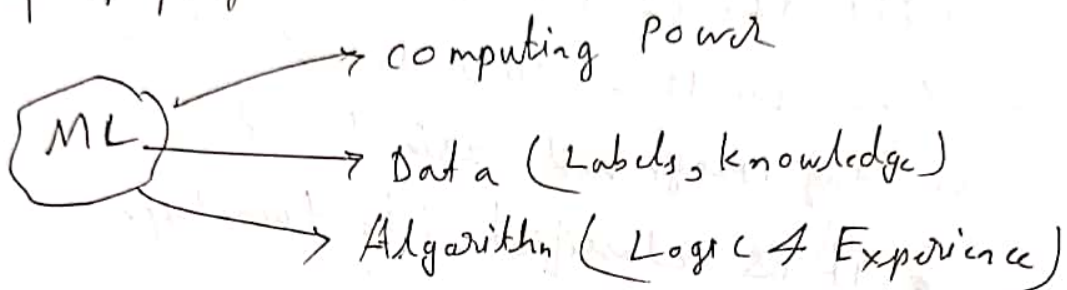 Computing Power
ML
Data (Labels, knowledge)
Algorithm (Logic & Experience)